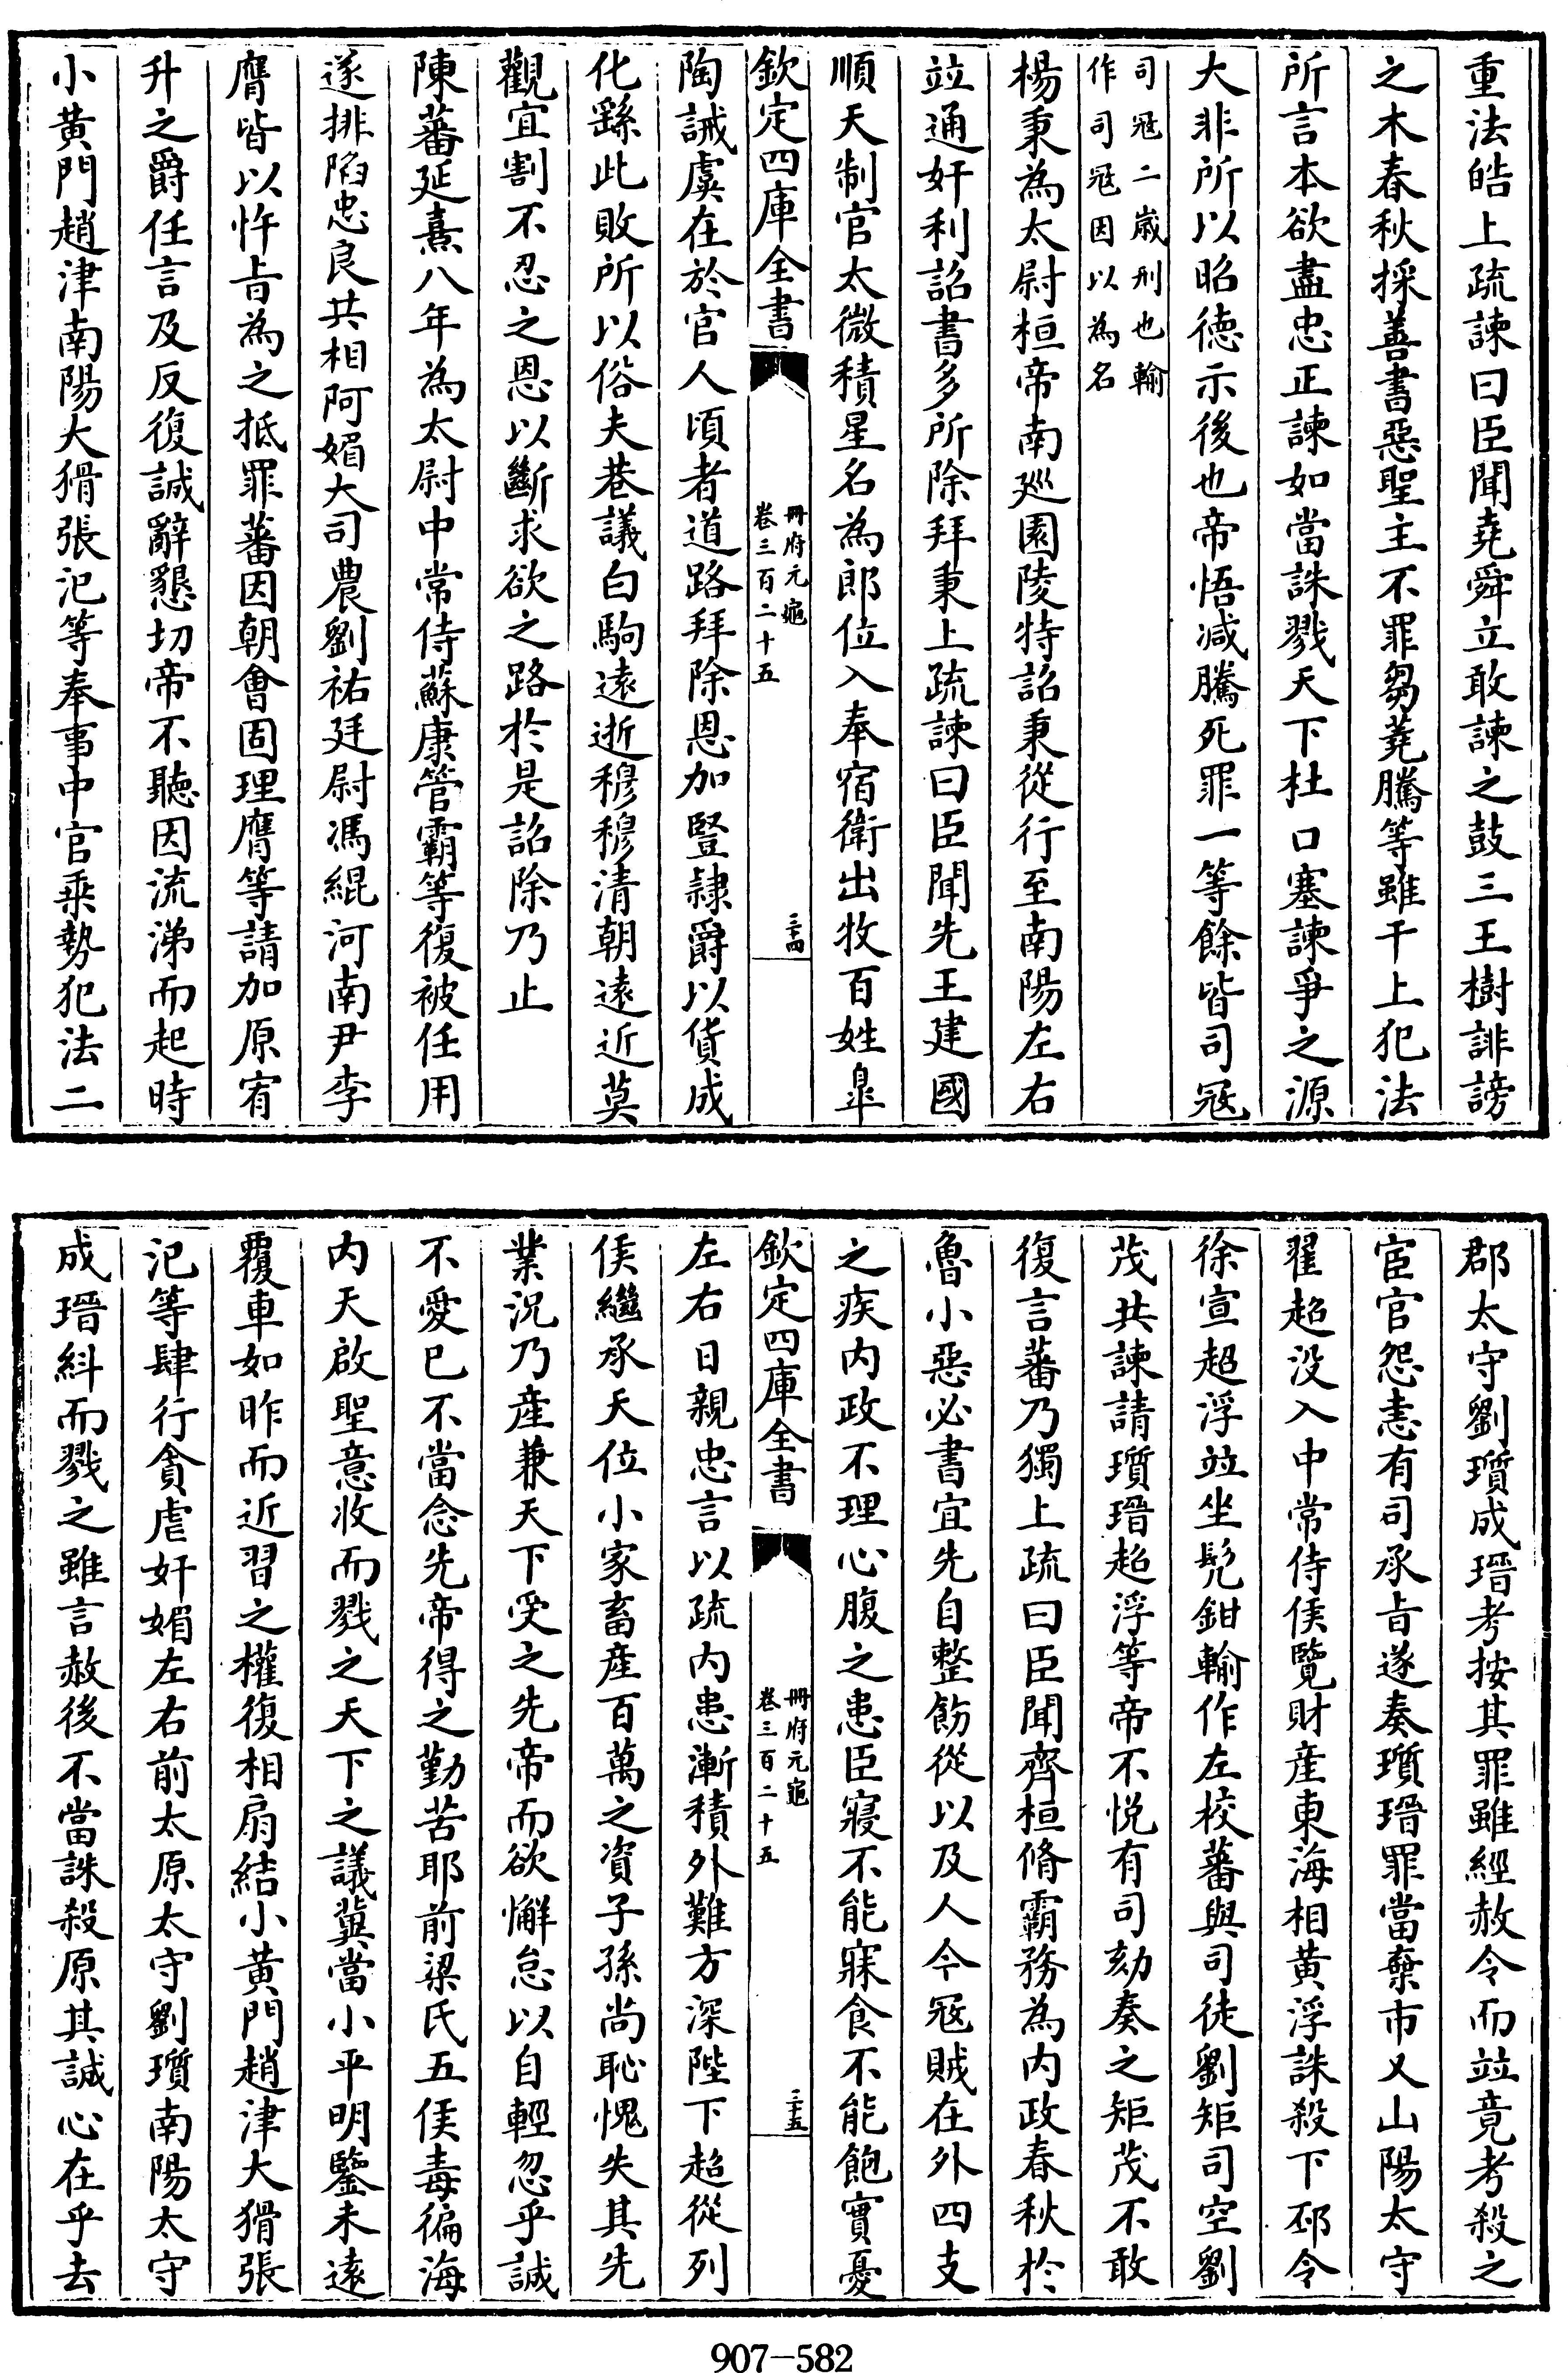 重法皓上疏諫曰臣聞堯舜立敢諫之鼓三王樹誹謗
之木春秋採善書惡聖主不罪芻蕘騰等雖干上犯法
所言本欲盡忠正諫如當誅戮天下杜口塞諫爭之源
大非所以昭德示後也帝悟减騰死罪一等餘皆司冦
司冦二歲刑也輸
作司冦因以為名
楊秉為太尉桓帝南廵園陵特詔秉從行至南陽左右
竝通奸利詔書多所除拜秉上疏諫曰臣聞先王建國
順天制官太微積星名為郎位入奉宿衛出牧百姓臯
欽定四庫全書
冊府元龜
卷三百二十五
三十四
陶誡虞在於官人頃者道路拜除恩加豎隷爵以貨成
化繇此敗所以俗夫巷議白駒遠逝穆穆清朝遠近莫
觀宜割不忍之恩以斷求欲之路於是詔除乃止
陳蕃延熹八年為太尉中常侍蘇康管霸等復被任用
遂排陷忠良共相阿媚大司農劉祐廷尉馮緄河南尹李
膺皆以忤旨為之抵罪蕃因朝會固理膺等請加原宥
升之爵任言及反復誠辭懇切帝不聽因流涕而起時
小黃門趙津南陽大猾張汜等奉事中官乘勢犯法二
郡太守劉瓆成瑨考按其罪雖經赦令而竝竟考殺之
宦官怨恚有司承旨遂奏瓆瑨罪當棄市又山陽太守
翟超没入中常侍侯覽財產東海相黃浮誅殺下邳令
徐宣超浮竝坐髡鉗輸作左校蕃與司徒劉矩司空劉
茂共諫請瓆瑨超浮等帝不悅有司劾奏之矩茂不敢
復言蕃乃獨上疏曰臣聞齊桓脩霸務為内政春秋於
魯小惡必書宜先自整飭從以及人今冦賊在外四支
之疾内政不理心腹之患臣寢不能寐食不能飽實憂
欽定四庫全書
冊府元龜
卷三百二十五
三十五
左右日親忠言以疏内患漸積外難方深陛下超從列
侯繼承天位小家畜產百萬之資子孫尚恥愧失其先
業況乃產兼天下受之先帝而欲懈怠以自輕忽乎誠
不愛已不當念先帝得之勤苦耶前梁氏五侯毒徧海
内天啟聖意收而戮之天下之議冀當小平明鑒未遠
覆車如昨而近習之權復相扇結小黃門趙津大猾張
汜等肆行貪虐奸媚左右前太原太守劉瓆南陽太守
成瑨糾而戮之雖言赦後不當誅殺原其誠心在乎去
907-582